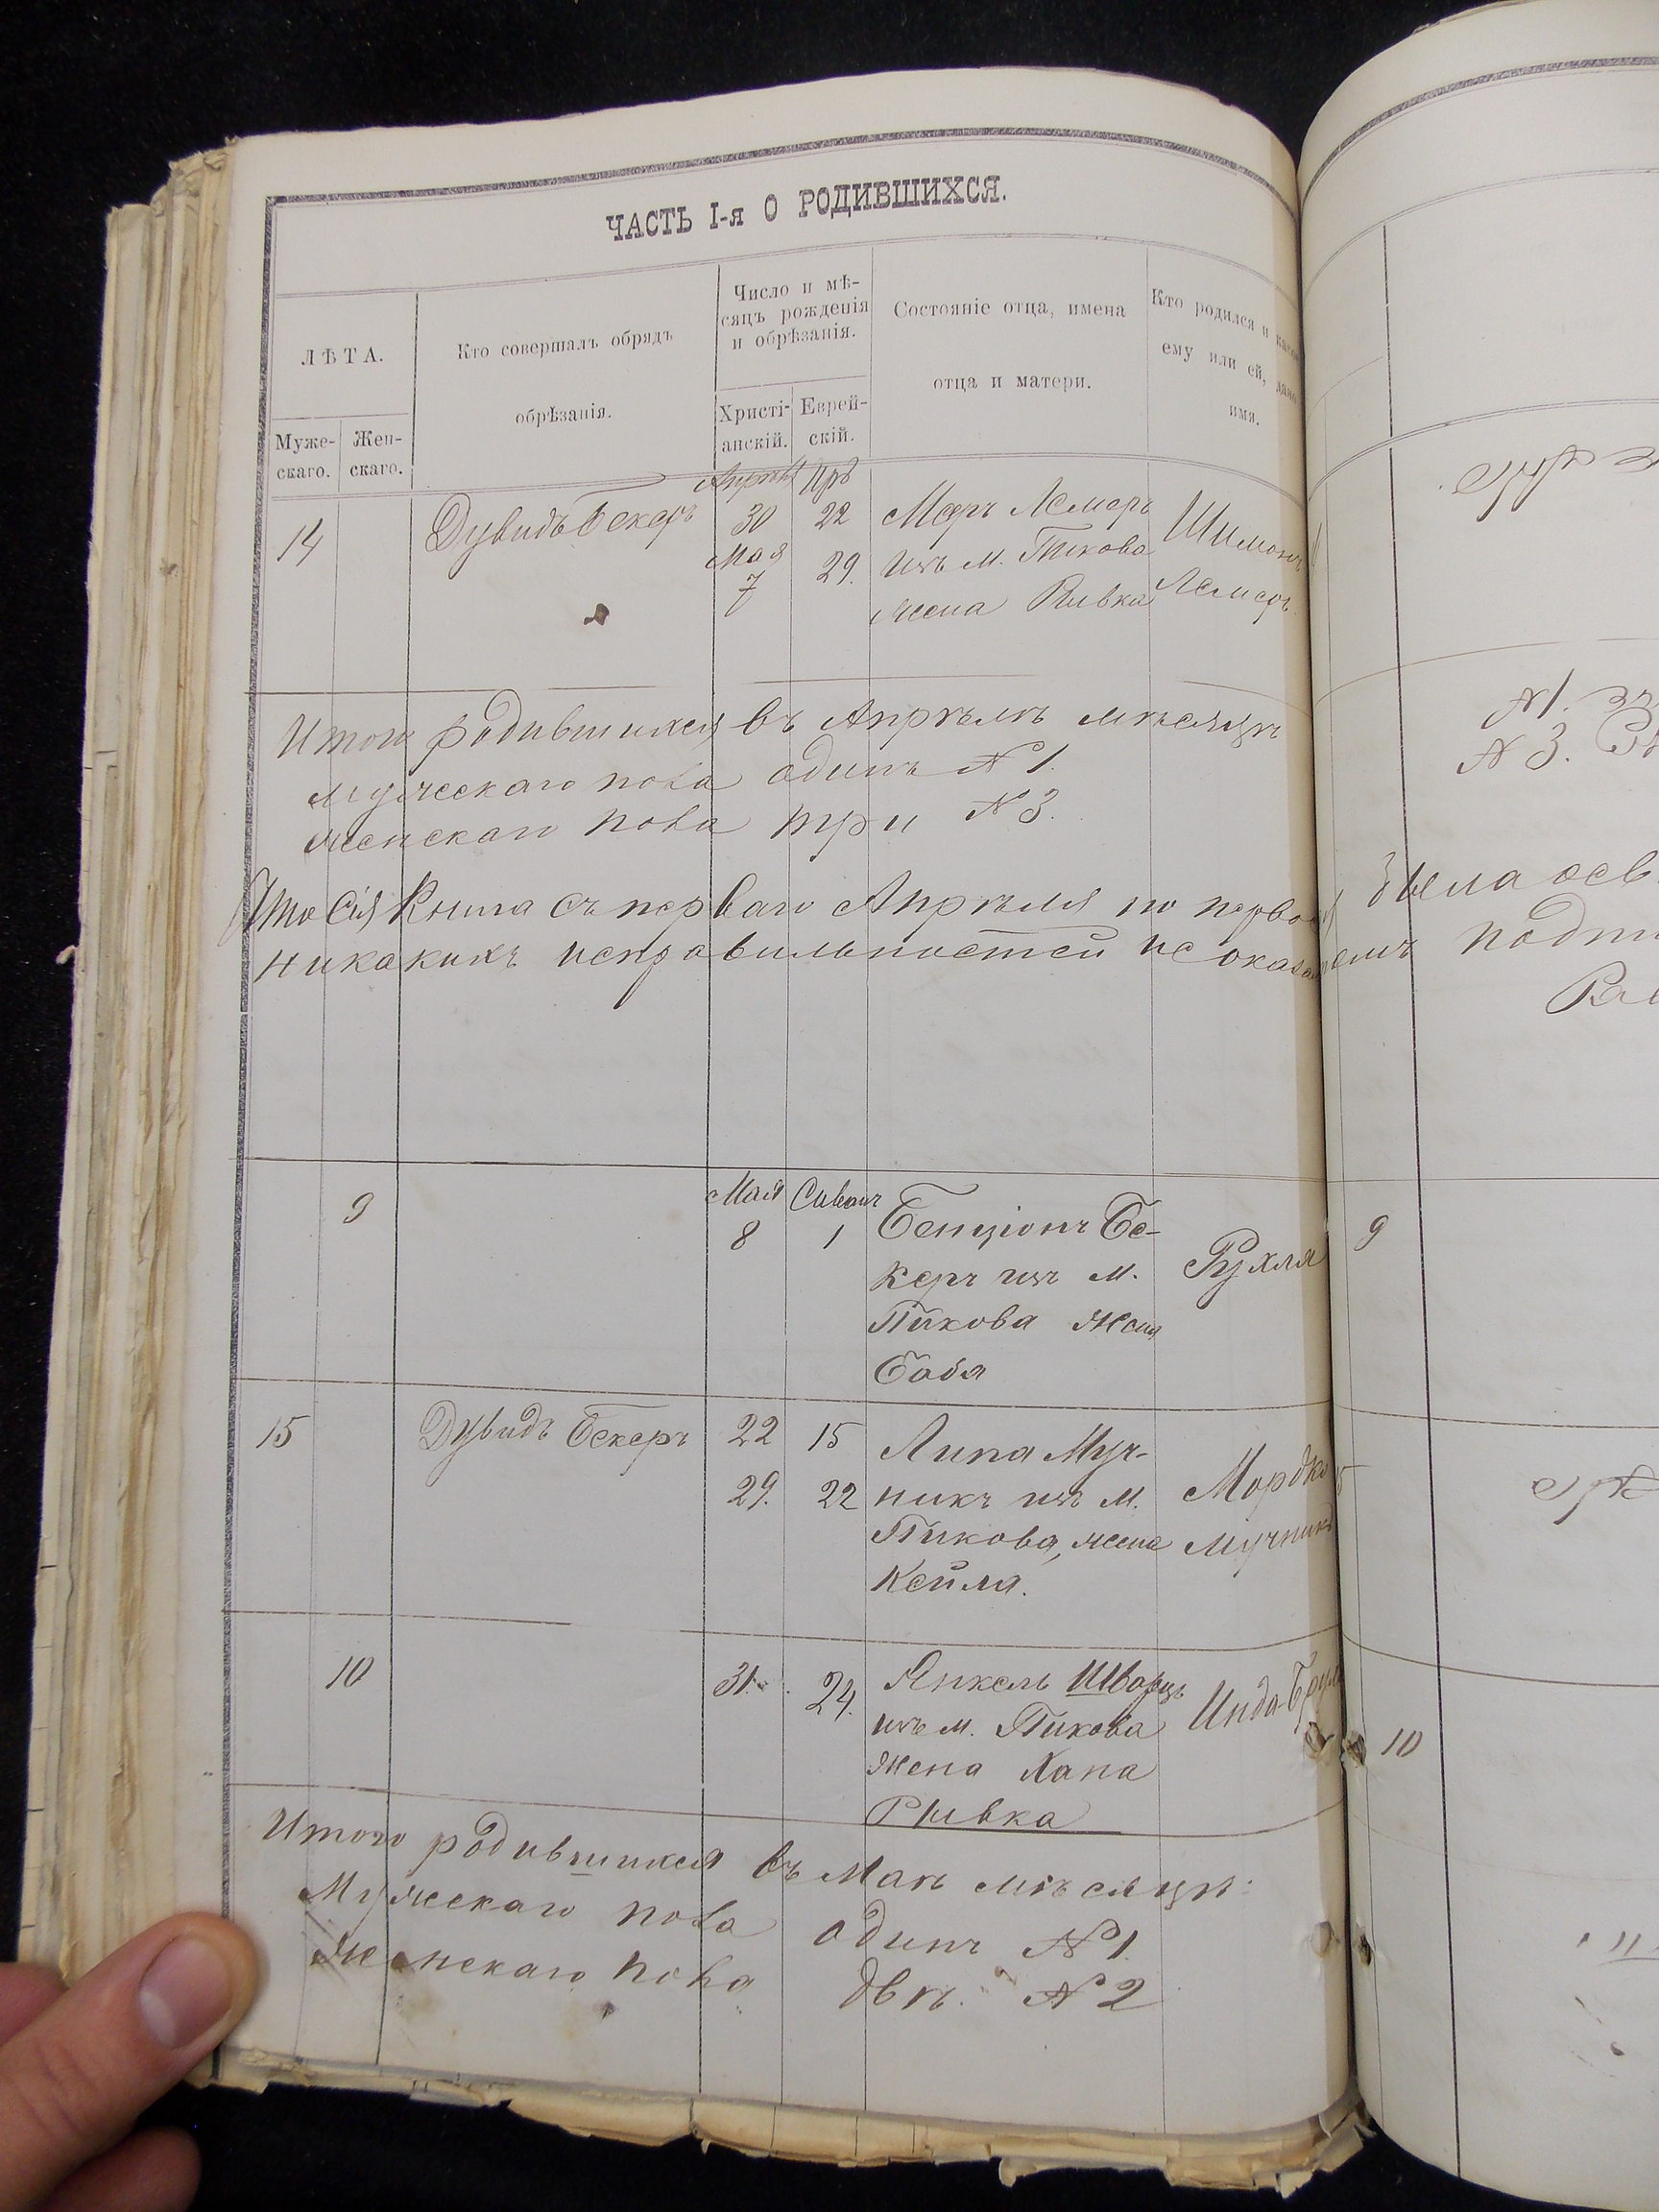 ЧАСТЬ I-я О РОДИВШИХСЯ.
ЛѢТА.
Муже-
скаго.
Жен-
скаго.
Кто совершалъ обрядъ
обрѣзанія.
Число и мѣ-
сяцъ рожденія
и обрѣзанія.
Христі-
анскій.
Еврей-
скій.
Состояніе отца, имена
отца и матери.
Кто родился и
ему или ей,
имя.
14
Дувидъ Бекеръ
Апрѣль
30
Мая
7
Иръ
22
29.
Меръ Лемеръ
изъ м. Пикова
жена Ривка
Шимонъ
Лемеръ
Итого родившихся въ Апрѣлѣ мѣсяцѣ
мужескаго пола одинъ № 1.
женскаго пола три № 3.
Что сія Книга съ перваго Апрѣля по перво
никакихъ неправильностей не оказа
9
Мая
8
Сиванъ
1
Бенціонъ Бе-
керъ изъ м.
Пикова жена
Бабя
Рухля
15
Дувидъ Бекеръ
22
29.
15
22
Липа Муч-
никъ изъ м.
Пикова, жена
Кейла.
Мордко
Мучникъ
10
31.
24.
Янкель Шварцъ
изъ м. Пикова
жена Хана
Ривка
Инда
Итого родившихся въ Маѣ мѣсяцѣ:
Мужескаго пола одинъ № 1.
Женскаго пола двѣ. № 2
№ 1.
№ 3.
была
9
10